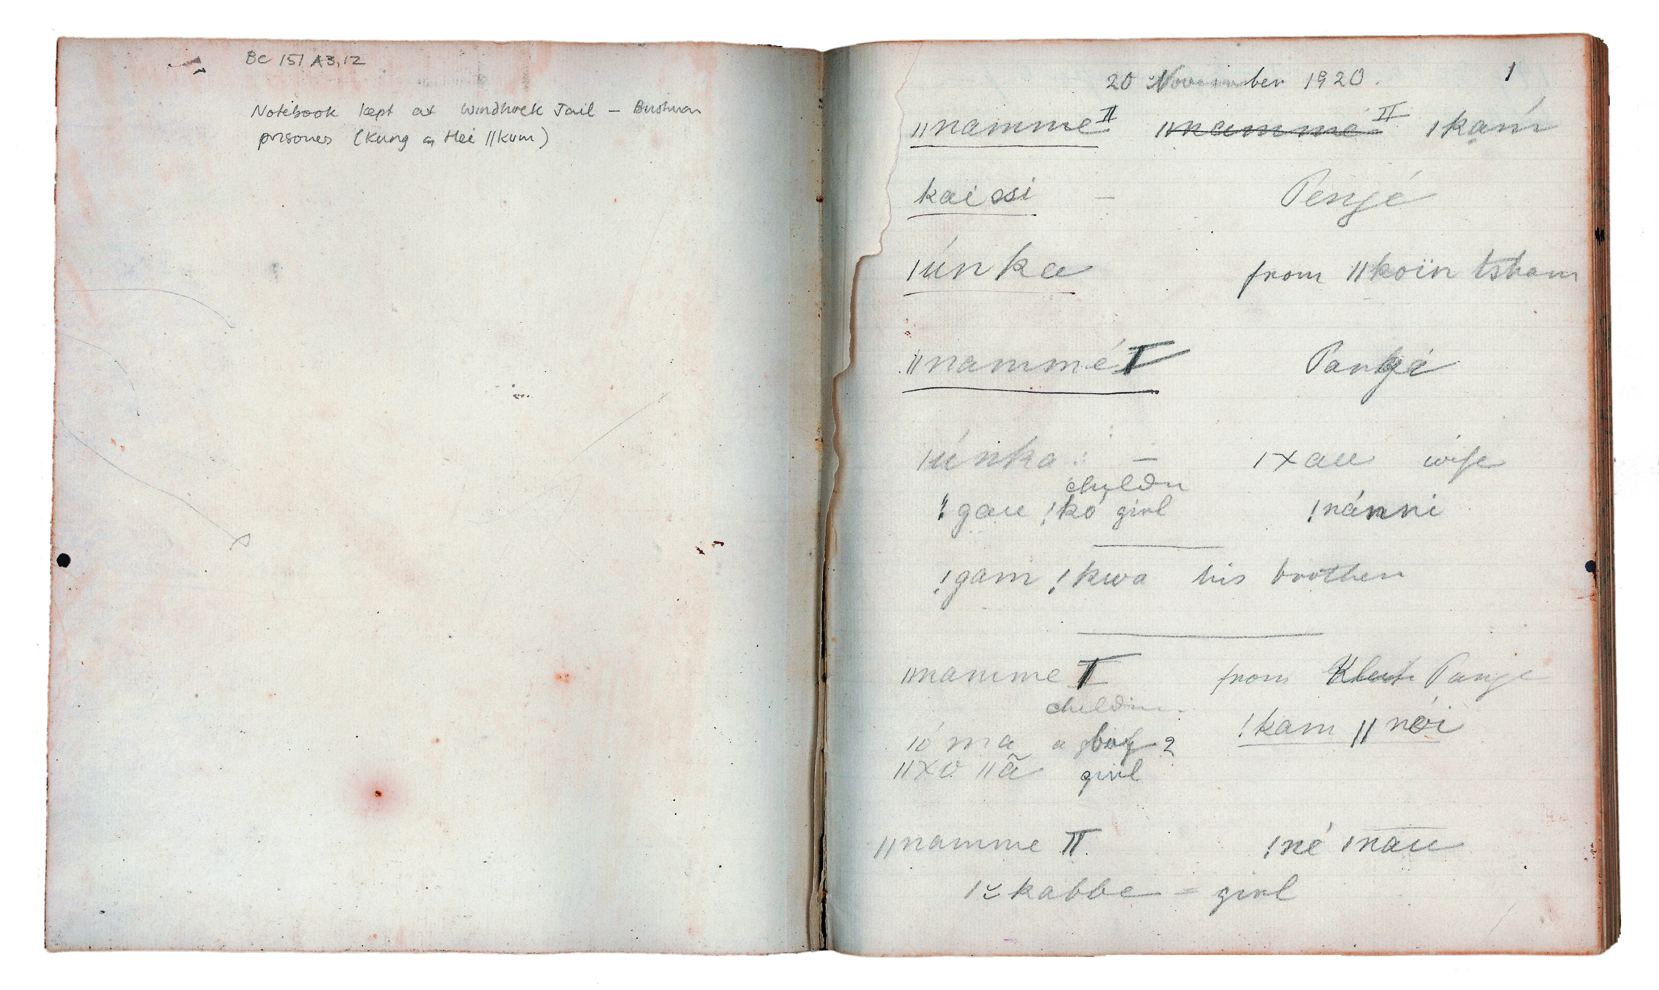 BC 151 A3,12
Notebook kept at Windhoek Jail – Bushman
prisoners (Kung & Hei ||kum)
1
20 November 1920.
||namme II ||nammé II !kam
kaissi – Pengé
|únka from ||koïn tsham
||nammé I Pangé
|únka : – |xau wife
childn
!gau !kó girl !nánni
!gam !kwa his brother
||namme I from Pange
childn
|ó ma a boy 2 !kam ||nói
||xo ||ã girl
||namme II !né |nau
kabbe = girl